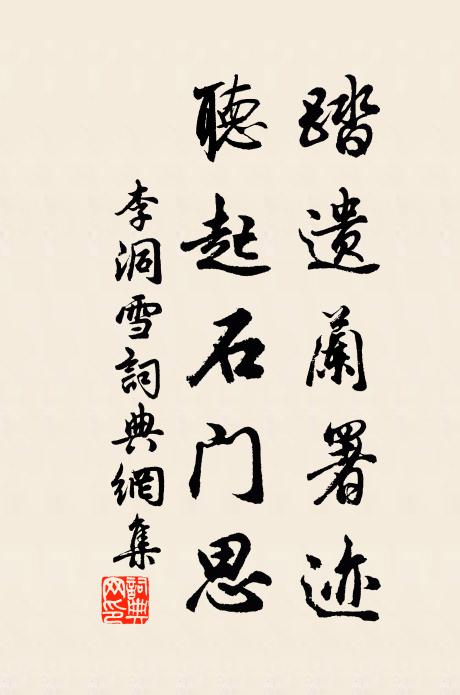 踏遺蘭署迹
聽起石门思
李洞雪詞典網集
詞典
网印